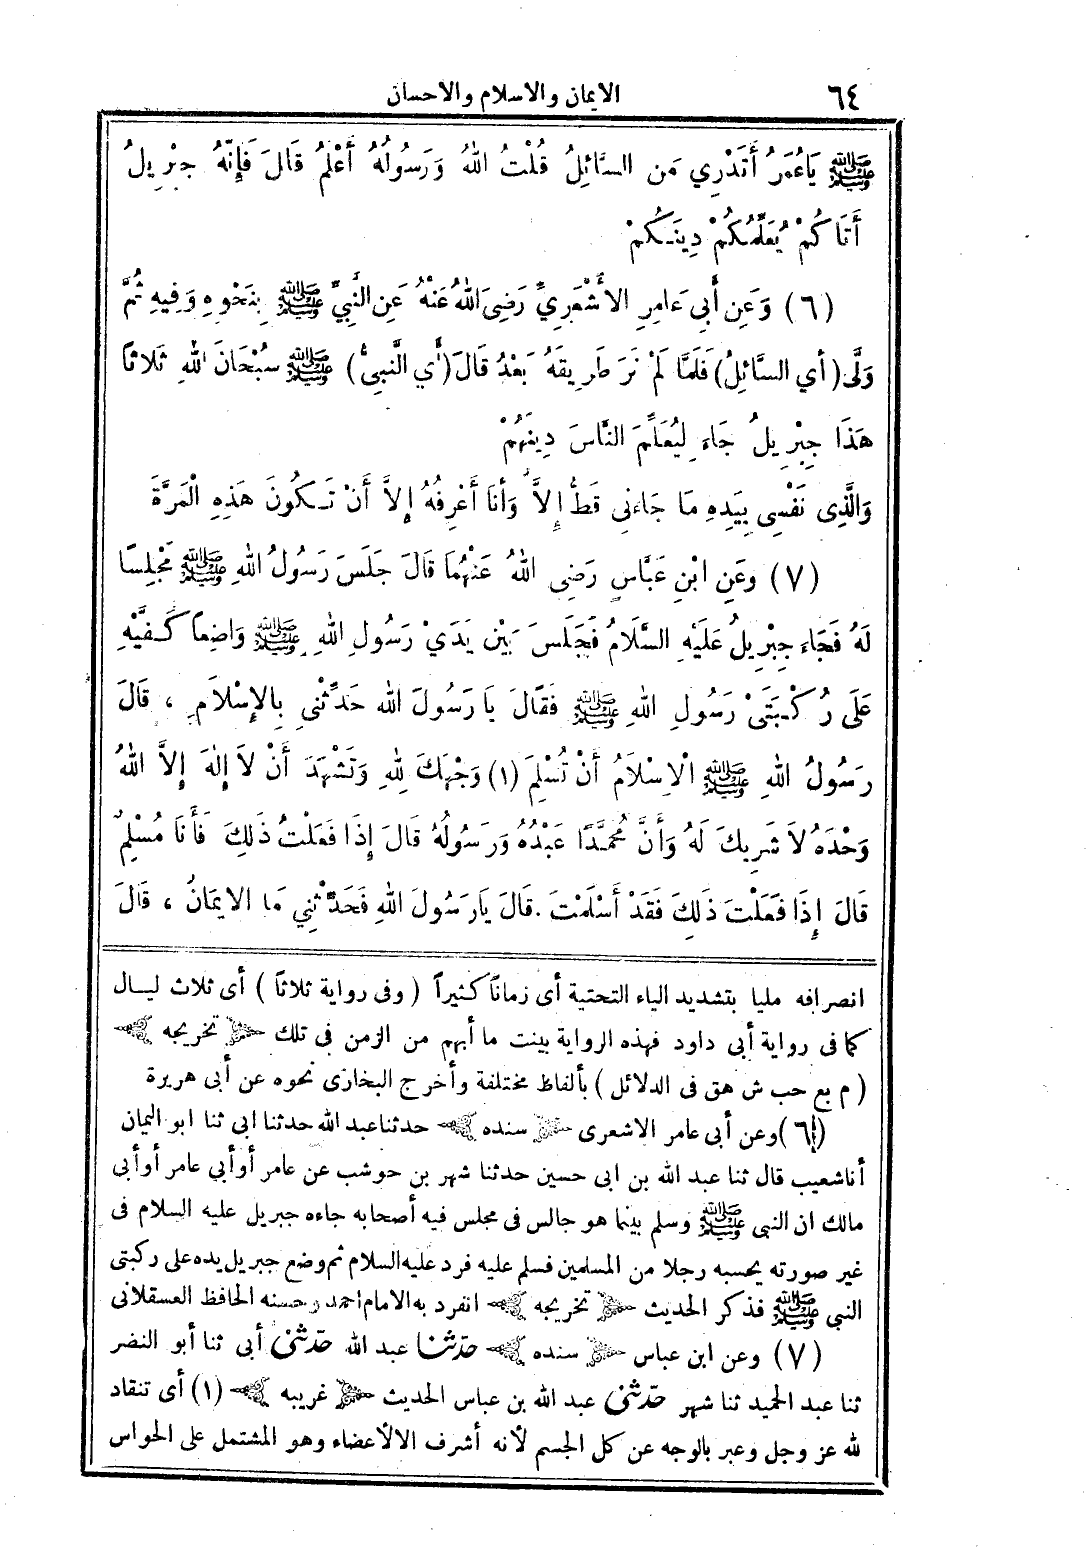 ٦٤
الايمان والاسلام والاحسان
ﷺ يَاعُمَرُ أَتَدْرِي مَن السَّائِلُ قُلْتُ اللهُ وَرَسُولُهُ أَعْلَمُ قَالَ فَإِنَّهُ جِبْرِيلُ
أَتَاكُمْ يُعَلِّمُكُمْ دِينَكُمْ
(٦) وَعَن أَبِي عَامِرِ الأَشْعَرِيِّ رَضِيَ اللهُ عَنْهُ عَنِ النَّبِيِّ ﷺ بِنَحْوِهِ وَفِيهِ ثُمَّ
وَلَّى (أي السَّائِلُ) فَلَمَّا لَمْ نَرَ طَرِيقَهُ بَعْدُ قَالَ (أَي النَّبِيُّ) ﷺ سُبْحَانَ اللهِ ثَلَاثًا
هَذَا جِبْرِيلُ جَاءَ لِيُعَلِّمَ النَّاسَ دِينَهُمْ
وَالَّذِى نَفْسِى بِيَدِهِ مَا جَاءَنِى قَطُّ إِلاَّ وَأَنَا أَعْرِفُهُ إِلاَّ أَنْ تَكُونَ هَذِهِ الْمَرَّةَ
(٧) وعَنِ ابْنِ عَبَّاسٍ رَضِى اللهُ عَنْهُمَا قَالَ جَلَسَ رَسُولُ اللهِ ﷺ مَجْلِسًا
لَهُ فَجَاءَ جِبْرِيلُ عَلَيْهِ السَّلَامُ فَجَلَسَ بَيْنَ يَدَيْ رَسُولِ اللهِ ﷺ وَاضِعاً كَفَّيْهِ
عَلَى رُكْبَتَىْ رَسُولِ اللهِ ﷺ فَقَالَ يَا رَسُولَ الله حَدِّثْنِى بِالإِسْلاَمِ ، قَالَ
رَسُولُ اللهِ ﷺ الْاِسْلَامُ أَنْ تُسْلِمَ (١) وَجْهَكَ لِلهِ وَتَشْهَدَ أَنْ لاَ إِلٰهَ إِلاَّ اللهُ
وَحْدَهُ لاَ شَرِيكَ لَهُ وَأَنَّ مُحَمَّدًا عَبْدُهُ وَرَسُولُهُ قَالَ إِذَا فَعَلْتُ ذَلِكَ فَأَنَا مُسْلِمٌ
قَالَ إِذَا فَعَلْتَ ذَلِكَ فَقَدْ أَسْلَمْتَ . قَالَ يَارَسُولَ اللهِ فَحَدِّثْنِي مَا الايمَانُ ، قَالَ
انصرافه مليا بتشديد الياء التحتية أى زماناً كثيراً ( وفى رواية ثلاثاً ) أى ثلاث ليال
كما فى رواية أبى داود فهذه الرواية بينت ما أبهم من الزمن فى تلك تخريجه
( م بع حب ش هق فى الدلائل ) بألفاظ مختلفة وأخرج البخارى نحوه عن أبى هريرة
(٦) وعن أبى عامر الاشعرى سنده حدثنا عبد الله حدثنا ابى ثنا ابو اليمان
أنا شعيب قال ثنا عبد الله بن ابى حسين حدثنا شهر بن حوشب عن عامر أو أبى عامر أو أبى
مالك ان النبى ﷺ وسلم بينما هو جالس فى مجلس فيه أصحابه جاءه جبريل عليه السلام فى
غير صورته يحسبه رجلا من المسلمين فسلم عليه فرد عليه السلام ثم وضع جبريل يده على ركبتى
النبى ﷺ فذكر الحديث تخريجه انفرد به الامام احمد وحسنه الحافظ العسقلانى
(٧) وعن ابن عباس سنده حدثنا عبد الله حدثنى أبى ثنا أبو النضر
ثنا عبد الحميد ثنا شهر حدثنى عبد الله بن عباس الحديث غريبه (١) أى تنقاد
لله عز وجل وعبر بالوجه عن كل الجسم لأنه أشرف الالأعضاء وهو المشتمل على الحواس